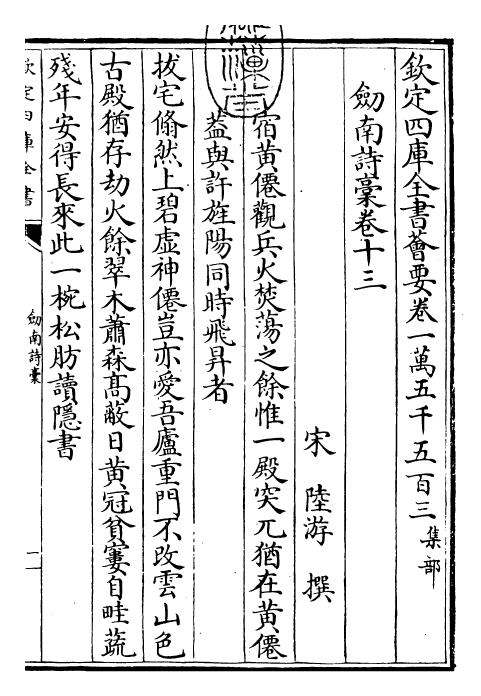 欽定四庫全書薈要卷一萬五千五百三 集部
劒南詩藁卷十三
宋 陸游 撰
宿黄僊觀兵火焚蕩之餘惟一殿突兀猶在黄僊
葢與許旌陽同時飛昇者
拔宅翛然上碧虛神僊豈亦愛吾廬重門不改雲山色
古殿猶存劫火餘翠木蕭森髙蔽日黄冠貧窶自畦蔬
殘年安得長來此一椀松肪讀隱書
欽定四庫全書
劒南詩藁
一